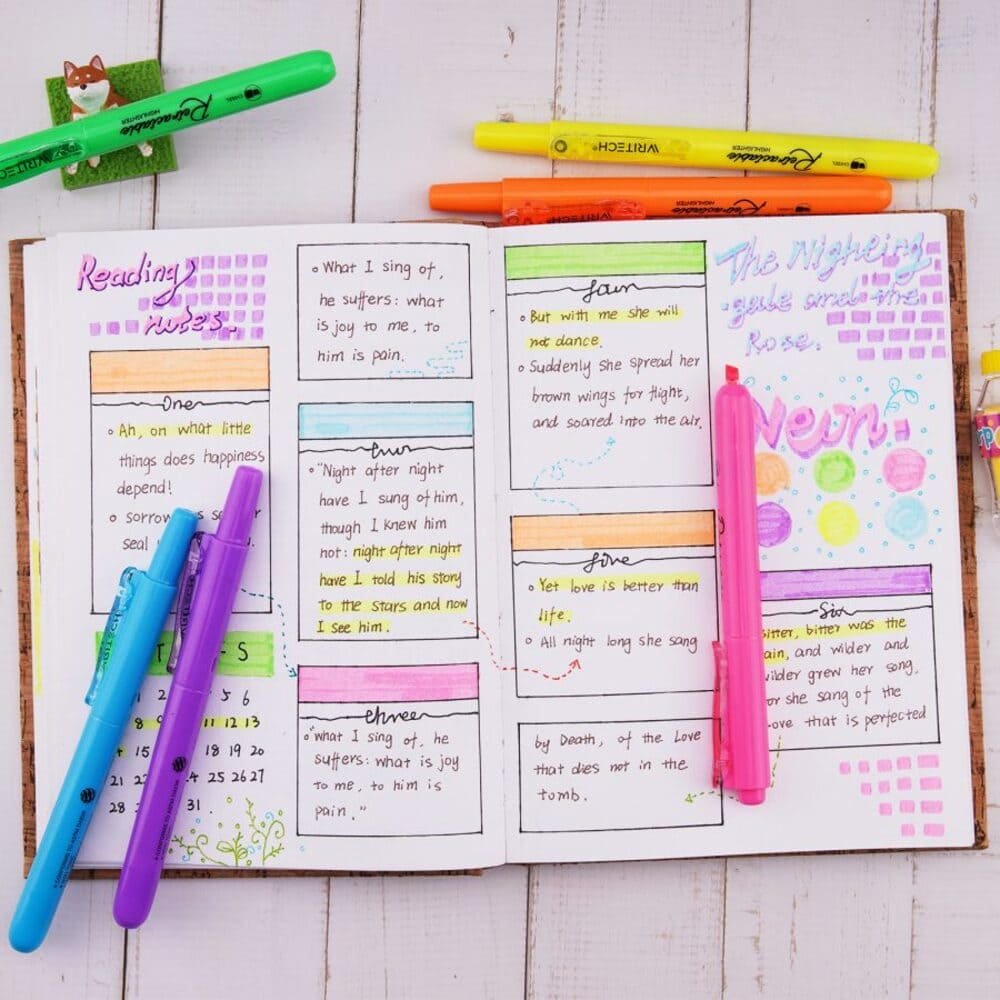 WRITECH
Retractable
HIGHLIGHTER
CHISEL
WRITECH®
Retractable
HIGHLIGHTER
CHISEL
WRITECH
Retractable
HIGHLIGHTER
Reading
notes.
One
Ah, on what little
things does happiness
depend!
sorrow
seal
S
2 5 6
8 9 11 12 13
15 18 19 20
21 22 24 25 26 27
28 31.
What I sing of,
he suffers: what
is joy to me, to
him is pain.
"Night after night
have I sung of him,
though I knew him
not: night after night
have I told his story
to the stars and now
I see him.
three
"what I sing of, he
suffers: what is joy
to me, to him is
pain."
But with me she will
not dance.
Suddenly she spread her
brown wings for flight,
and soared into the air.
five
Yet love is better than
life.
All night long she sang
by Death, of the Love
that dies not in the
tomb.
The Nigheing
-gale and the
Rose.
Neon
Six
bitter, bitter was the
pain, and wilder and
wilder grew her song,
for she sang of the
Love that is perfected